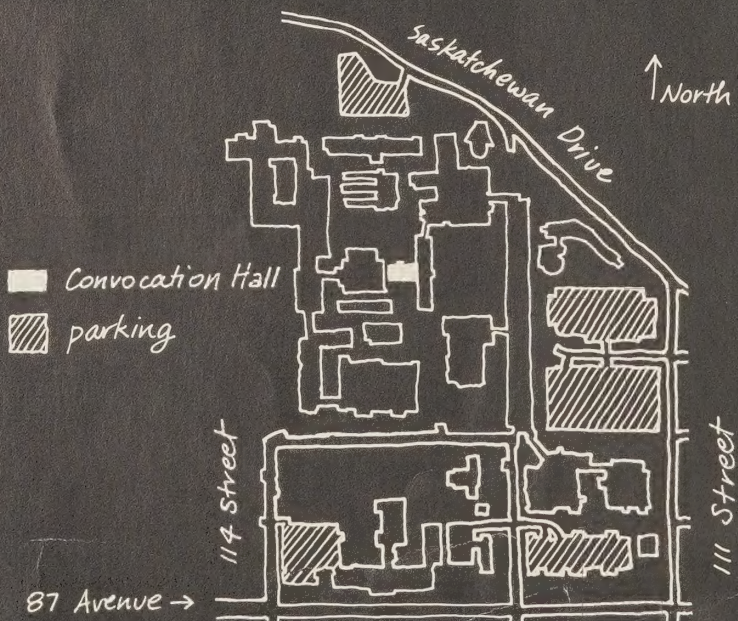 Saskatchewan Drive
↑ North
Convocation Hall
parking
114 Street
111 Street
87 Avenue →